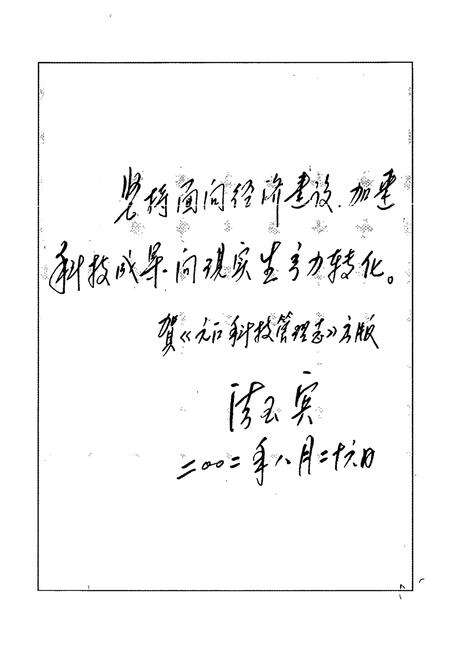 坚持面向经济建设、加速
科技成果向现实生产力转化。
贺《 科技管理志》出版
玉实
二〇〇二年八月二十六日